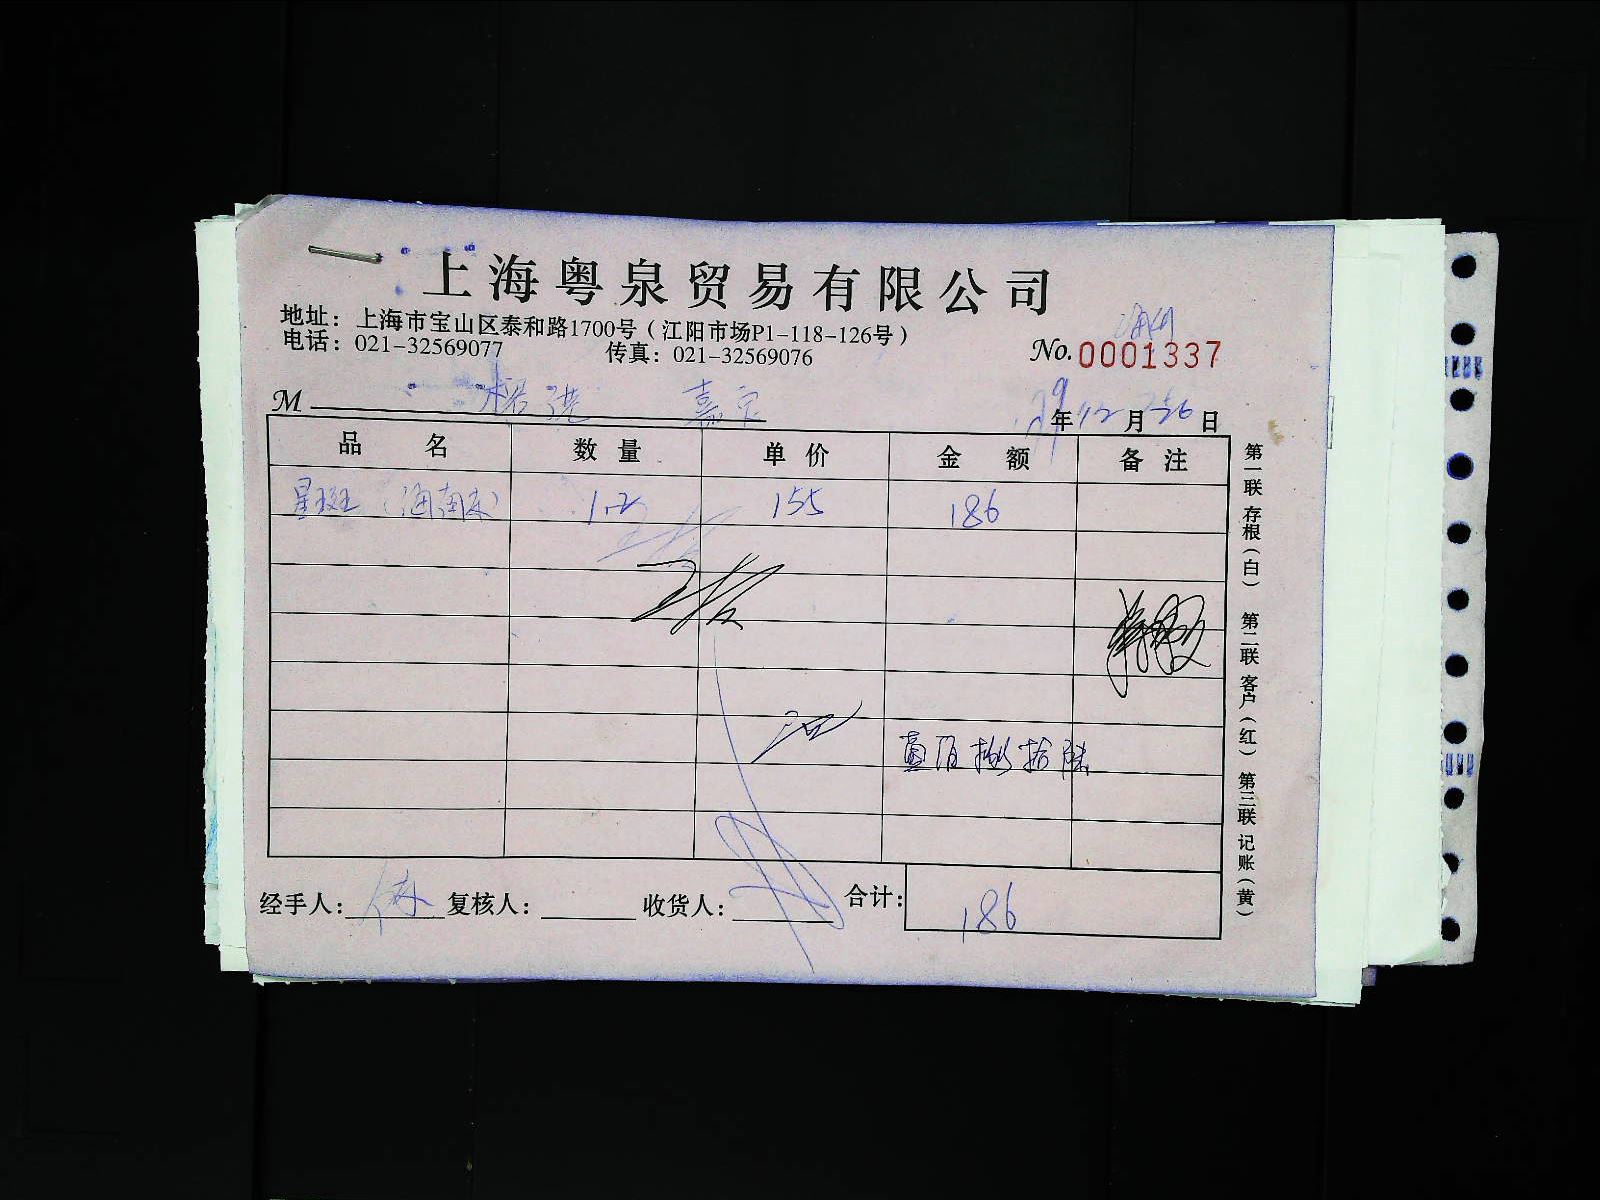 上海粤泉贸易有限公司
地址：上海市宝山区泰和路1700号（江阳市场P1-118-126号）
电话：021-32569077 传真：021-32569076
No.0001337
M 嘉定 年12月26日
品名 数量 单价 金额 备注
星斑（海南 1.2 155 186
壹佰捌拾陆
经手人： 复核人： 收货人： 合计：186
第一联 存根（白） 第二联 客户（红） 第三联 记账（黄）